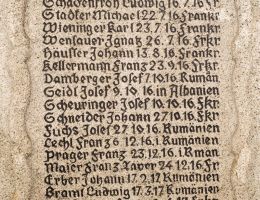 Schadenfroh Ludwig 16.7.16 Fr.
Stadler Michael 22.7.16 Frankr.
Wieninger Karl 23.7.16 Frankr.
Wensauer Ignatz 26.7.16 Frkr.
Häusler Johann 13.8.16 Frankr.
Kellermann Franz 23.9.16 Frkr.
Damberger Josef 7.10.16 Rumänien
Seidl Josef 9.10.16 in Albanien
Scheuringer Josef 10.10.16 Fkr.
Schneider Johann 27.10.16 Fkr.
Fuchs Josef 27.10.16 Rumänien
Lechl Franz 6.12.16 i. Rumänien
Prager Franz 23.12.16 i. Rman
Maier Franz Xaver 24.12.16 Fr.
Erber Johann 17.2.17 Rumänien
Braml Ludwig 17.3.17 Rumänien